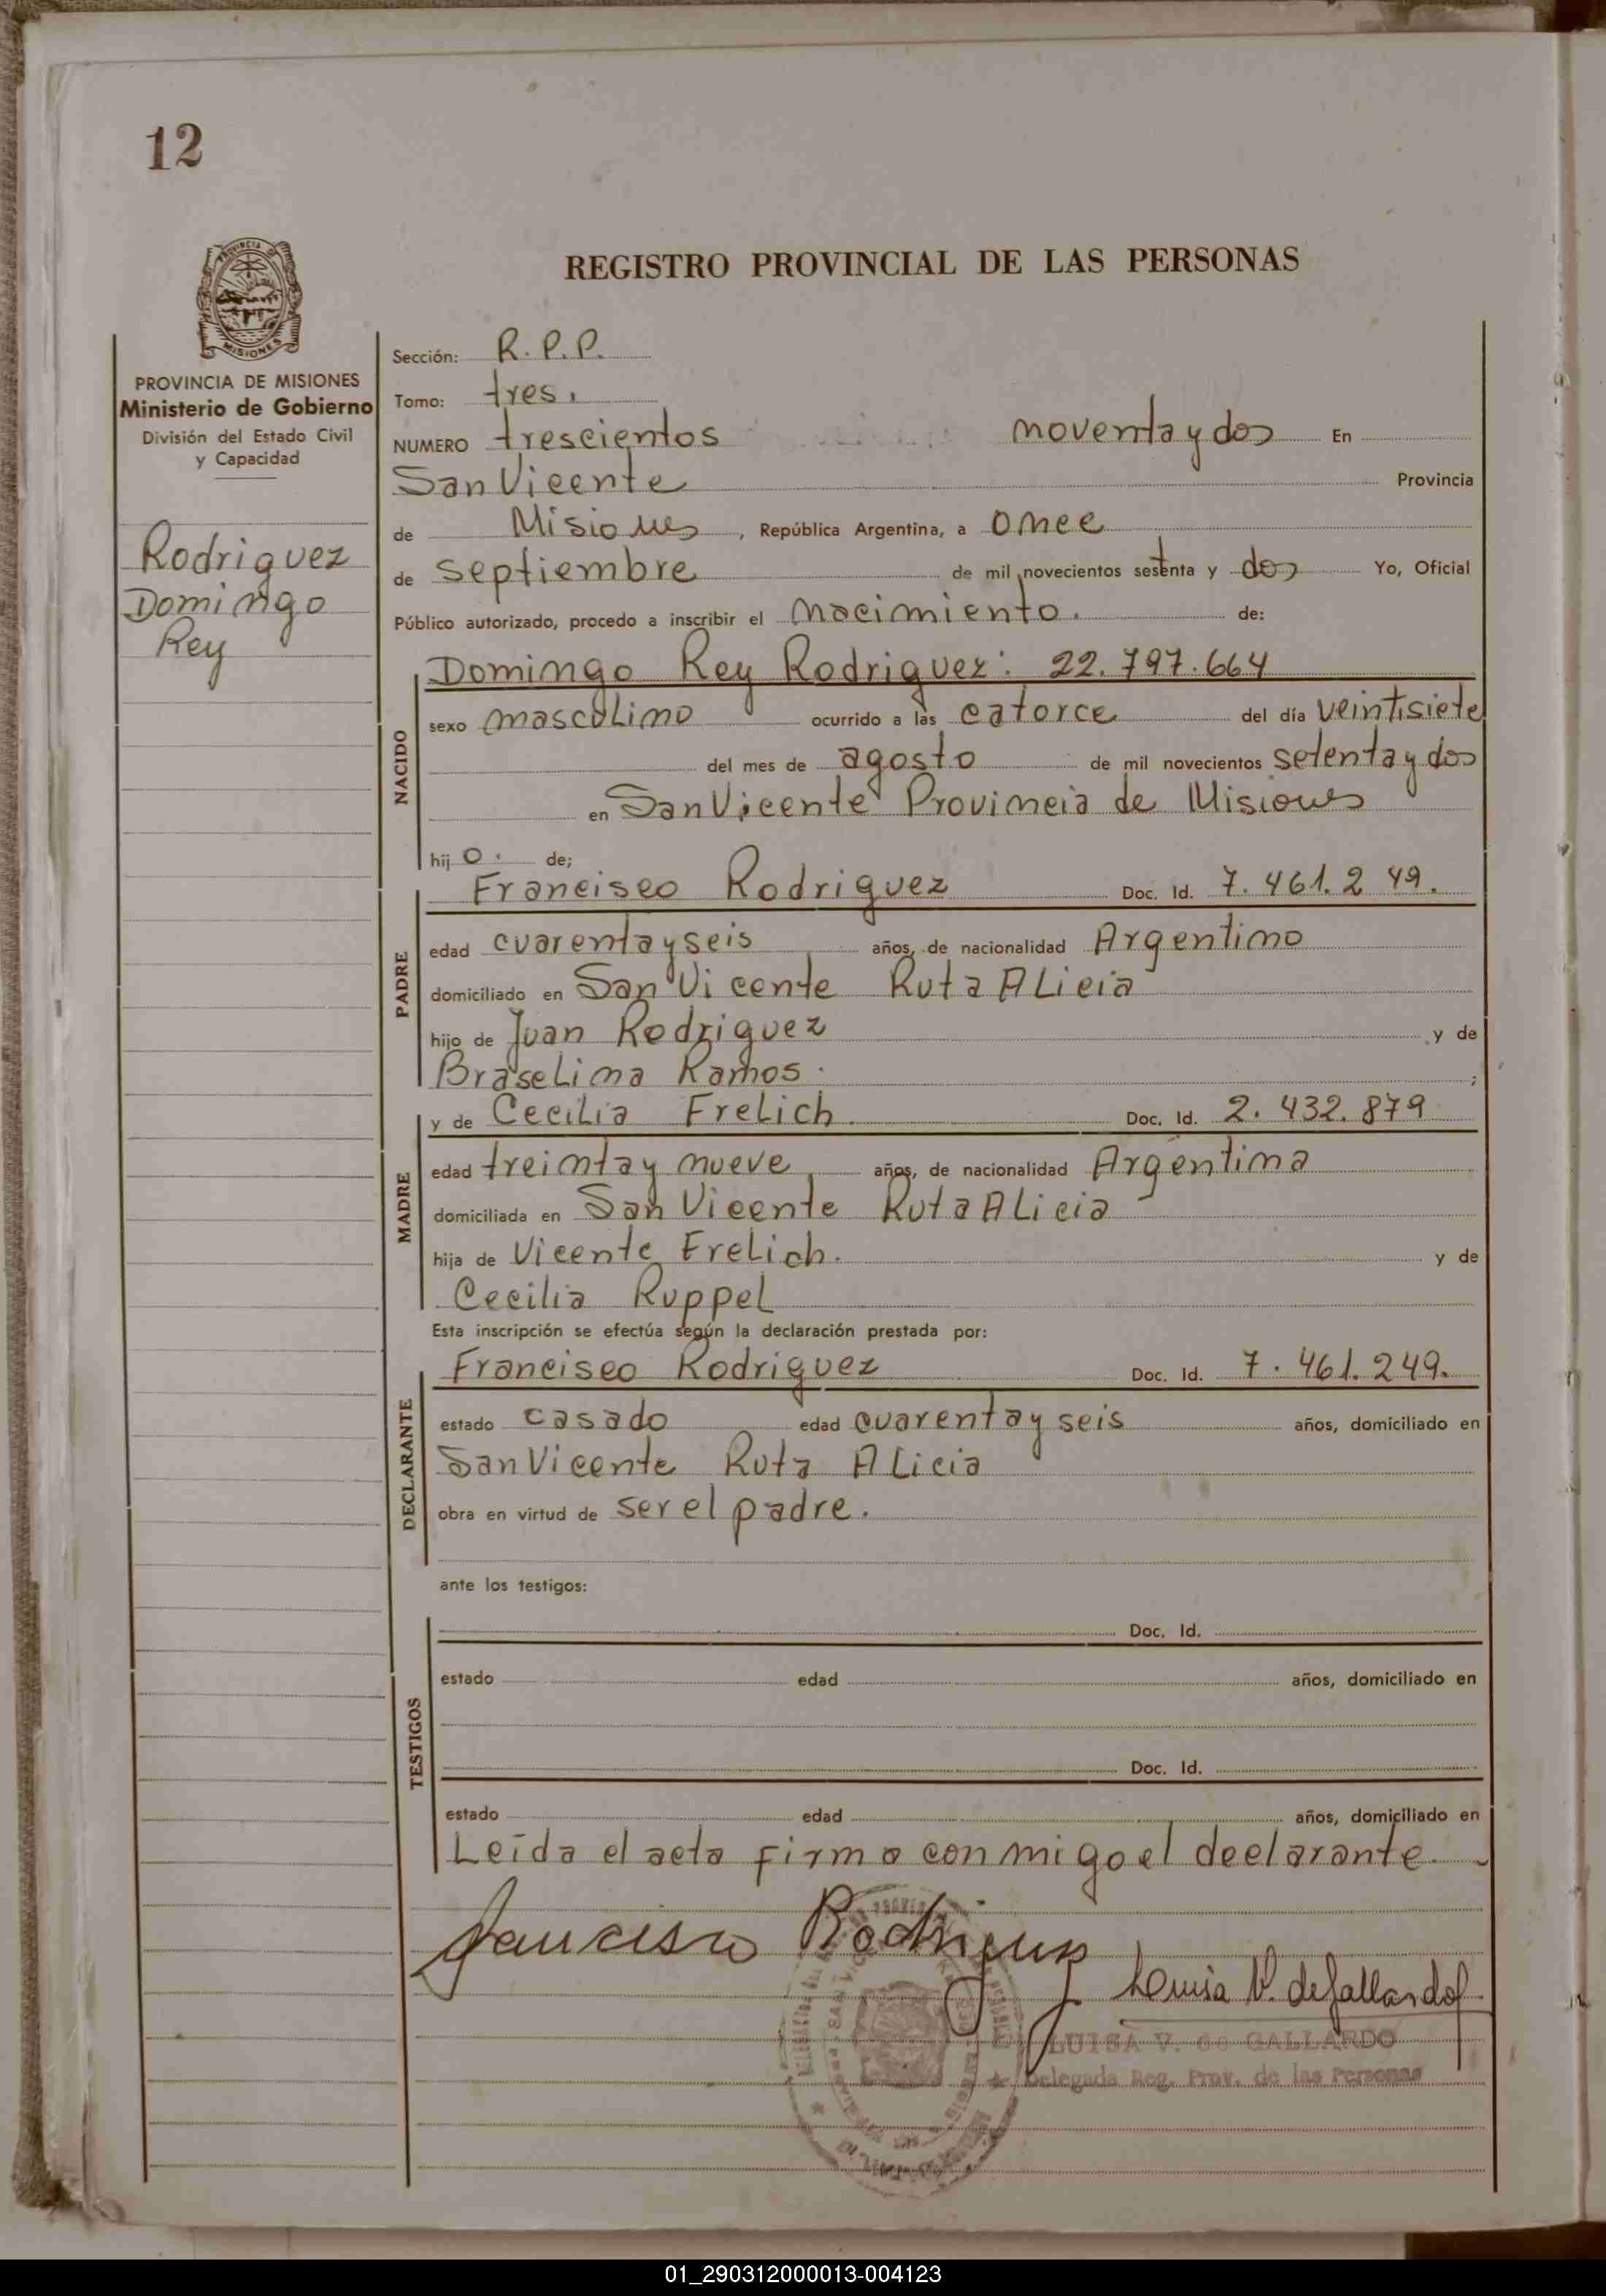 12
PROVINCIA DE MISIONES
Ministerio de Gobierno
División del Estado Civil
y Capacidad
Rodriguez
Domingo
Rey
REGISTRO PROVINCIAL DE LAS PERSONAS
Sección: R.P.P.
Tomo: tres.
NUMERO trescientos noventa y dos En
San Vicente Provincia
de Misiones, República Argentina, a once
de septiembre de mil novecientos setenta y dos Yo, Oficial
Público autorizado, procedo a inscribir el nacimiento. de:
NACIDO
Domingo Rey Rodriguez: 22.797.664
sexo masculino ocurrido a las catorce del día veintisiete
del mes de agosto de mil novecientos setenta y dos
en San Vicente Provincia de Misiones
hijo. de;
PADRE
Francisco Rodriguez Doc. Id. 7.461.249.
edad cuarenta y seis años, de nacionalidad Argentino
domiciliado en San Vicente Ruta Alicia
hijo de Juan Rodriguez y de
Braselina Ramos.;
MADRE
y de Cecilia Frelich Doc. Id. 2.432.879
edad treinta y nueve años, de nacionalidad Argentina
domiciliada en San Vicente Ruta Alicia
hija de Vicente Frelich. y de
Cecilia Ruppel
Esta inscripción se efectúa según la declaración prestada por:
DECLARANTE
Francisco Rodriguez Doc. Id. 7.461.249.
estado casado edad cuarenta y seis años, domiciliado en
San Vicente Ruta Alicia
obra en virtud de ser el padre.
ante los testigos:
TESTIGOS
Doc. Id.
estado edad años, domiciliado en
Doc. Id.
estado edad años, domiciliado en
Leída el acta firma conmigo el declarante.
Francisco Rodriguez
Louisa V. de Gallardo
LUISA V. de GALLARDO
Delegada Reg. Prov. de las Personas
01_290312000013-004123